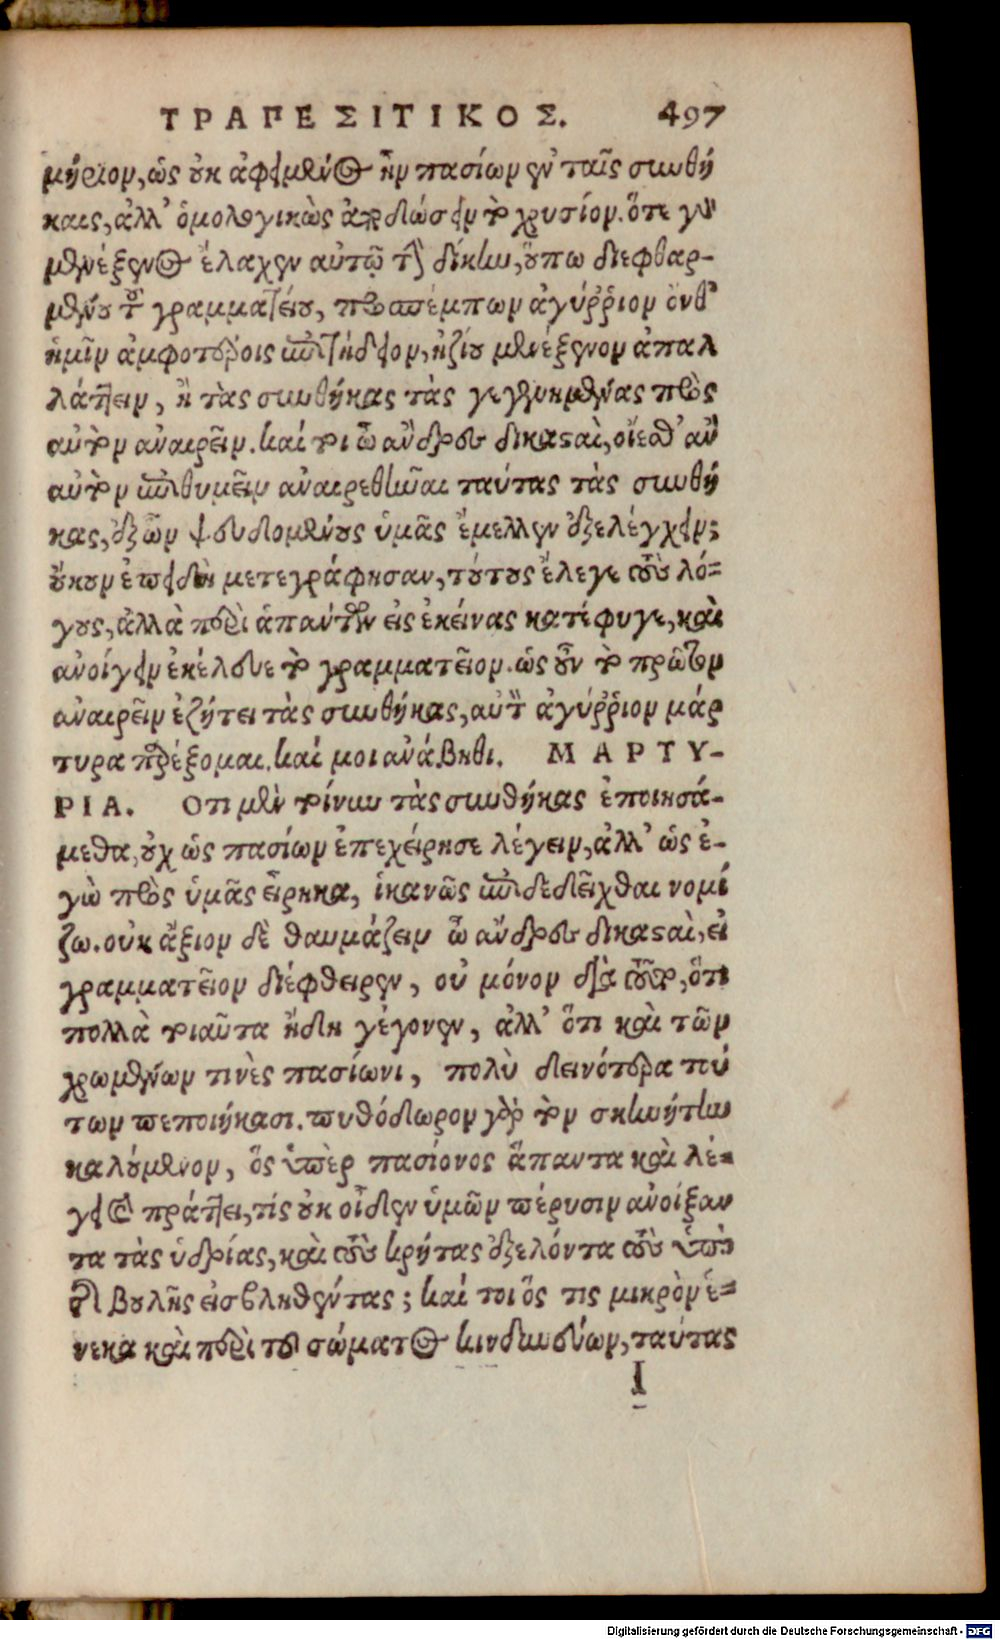 ΤΡΑΠΕΣΙΤΙΚΟΣ. 497
μήριον, ὡς οὐκ ἀφειμένος ἦν πασίων ἐν ταῖς συνθή
καις, ἀλλ' ὁμολογικὼς ἀποδώσειν τὸ χρυσίον. ὅτε γὰρ
μενέξενος ἔλαχεν αὐτῷ τὴν δίκην, οὔπω διεφθαρ-
μένου τοῦ γραμματείου, προσπέμπων ἀγύρριον ὄνθ'
ἡμῖν ἀμφοτέροις ἐπιτήδειον, ἠξίου μενέξενον ἀπαλ
λάττειν, ἢ τὰς συνθήκας τὰς γεγενημένας πρὸς
αὐτὸν ἀναιρεῖν. καί τοι ὦ ἄνδρες δικασταὶ, οἴεσθ' ἂν
αὐτὸν ἐπιθυμεῖν ἀναιρεθῆναι ταύτας τὰς συνθή
κας, ἐξ ὧν ψευδομένους ὑμᾶς ἔμελλεν ἐξελέγχειν;
οὔκουν ἐπειδὴ μετεγράφησαν, τούτους ἔλεγε τοὺς λό-
γους, ἀλλὰ περὶ ἁπάντων εἰς ἐκείνας κατέφυγε, καὶ
ἀνοίγειν ἐκέλευε τὸ γραμματεῖον. ὡς οὖν τὸ πρῶτον
ἀναιρεῖν ἐζήτει τὰς συνθήκας, αὐτὸν ἀγύρριον μάρ
τυρα παρέξομαι. καί μοι ἀνάβηθι. ΜΑΡΤΥ-
ΡΙΑ. Οτι μὲν τοίνυν τὰς συνθήκας ἐποιησά-
μεθα, οὐχ ὡς πασίων ἐπεχείρησε λέγειν, ἀλλ' ὡς ἐ-
γὼ πρὸς ὑμᾶς εἴρηκα, ἱκανῶς ἐπιδεδεῖχθαι νομί
ζω. οὐκ ἄξιον δὲ θαυμάζειν ὦ ἄνδρες δικασταὶ, εἰ
γραμματεῖον διέφθειρεν, οὐ μόνον διὰ τοῦτο, ὅτι
πολλὰ τοιαῦτα ἤδη γέγονεν, ἀλλ' ὅτι καὶ τῶν
χρωμένων τινὲς πασίωνι, πολὺ δεινότερα τού
των πεποιήκασι. πυθόδωρον γὰρ τὸν σκηνήτην
καλούμενον, ὃς ὑπὲρ πασίονος ἅπαντα καὶ λέ-
γει καὶ πράττει, τίς οὐκ οἶδεν ὑμῶν πέρυσιν ἀνοίξαν
τα τὰς ὑδρίας, καὶ τοὺς κρήτας ἐξελόντα τοὺς ὑπὸ
τῆς βουλῆς εἰσβληθέντας; καί τοι ὅς τις μικρὸν ἕ-
νεκα καὶ περὶ τοῦ σώματος κινδυνεύων, ταύτας
I
Digitalisierung gefördert durch die Deutsche Forschungsgemeinschaft - DFG